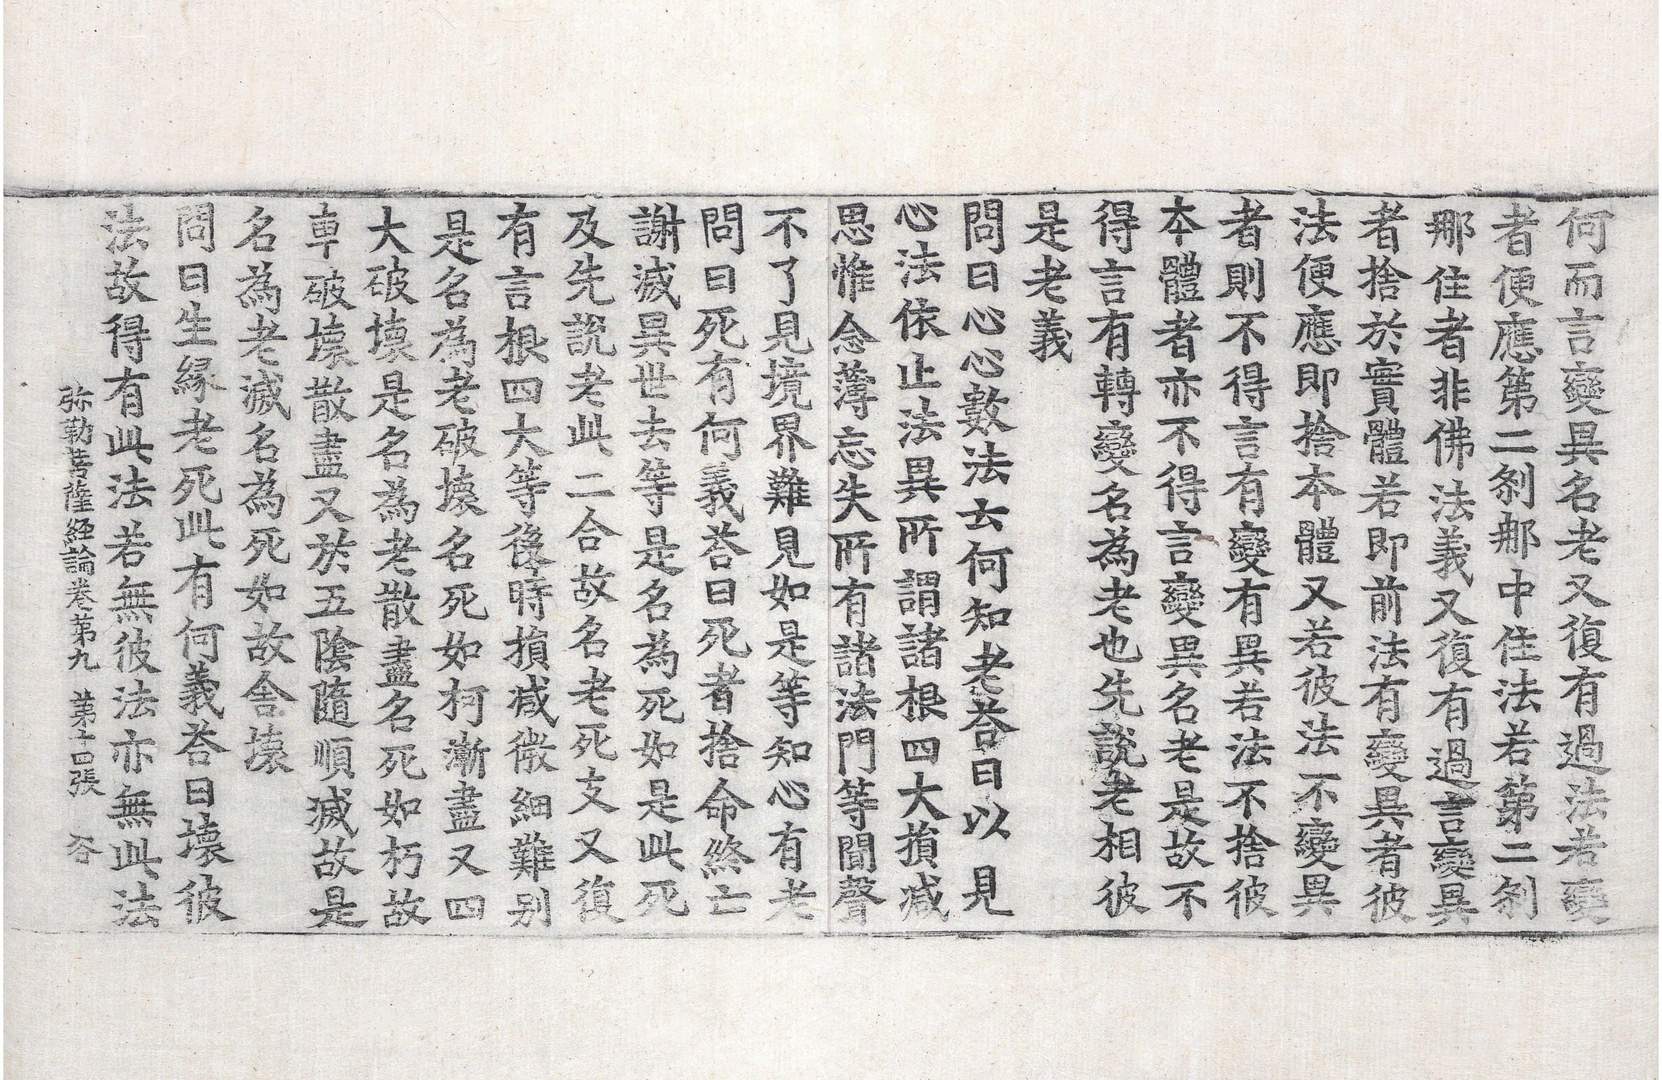 何而言變異名老又復有過法若變
者便應第二刹那中住法若第二刹
那住者非佛法義又復有過言變異
者捨於實體若即前法有變異者彼
法便應即捨本體又若彼法不變異
者則不得言有變有異若法不捨彼
本體者亦不得言變異名老是故不
得言有轉變名為老也先說老相彼
是老義
問曰心心數法云何知老荅曰以見
心法依止法異所謂諸根四大損減
思惟念薄忘失所有諸法門等聞聲
不了見境界難見如是等知心有老
問曰死有何義荅曰死者捨命終亡
謝滅異世去等是名為死如是此死
及先說老此二合故名老死支又復
有言根四大等後時損減微細難別
是名為老破壞名死如柯漸盡又四
大破壞是名為老散盡名死如朽故
車破壞散盡又於五陰隨順滅故是
名為老滅名為死如故舍壞
問曰生緣老死此有何義荅曰壞彼
法故得有此法若無彼法亦無此法
弥勒菩薩經論卷第九 苐十四張 谷